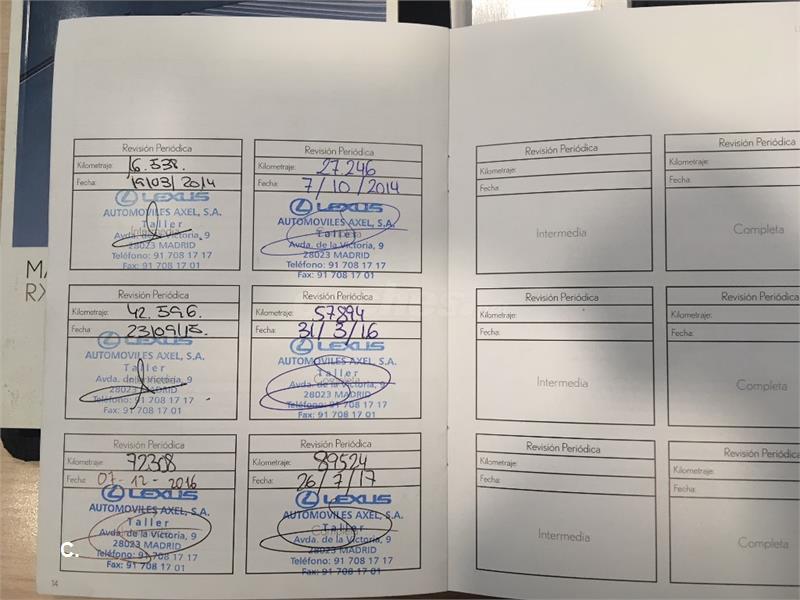 Revisión Periódica
Kilometraje: 16.538.
Fecha: 19/03/2014
LEXUS
AUTOMOVILES AXEL, S.A.
Taller
Avda. de la Victoria, 9
28023 MADRID
Teléfono: 91 708 17 17
Fax: 91 708 17 01
Revisión Periódica
Kilometraje: 27.246
Fecha: 7/10/2014
LEXUS
AUTOMOVILES AXEL, S.A.
Taller
Avda. de la Victoria, 9
28023 MADRID
Teléfono: 91 708 17 17
Fax: 91 708 17 01
Revisión Periódica
Kilometraje: 42.596.
Fecha: 23/09/15.
LEXUS
AUTOMOVILES AXEL, S.A.
Taller
Avda. de la Victoria, 9
28023 MADRID
Teléfono: 91 708 17 17
Fax: 91 708 17 01
Revisión Periódica
Kilometraje: 57894
Fecha: 31/3/16
LEXUS
AUTOMOVILES AXEL, S.A.
Taller
Avda. de la Victoria, 9
28023 MADRID
Teléfono: 91 708 17 17
Fax: 91 708 17 01
Revisión Periódica
Kilometraje: 72308
Fecha: 07-12-2016
LEXUS
AUTOMOVILES AXEL, S.A.
Taller
Avda. de la Victoria, 9
28023 MADRID
Teléfono: 91 708 17 17
Fax: 91 708 17 01
Revisión Periódica
Kilometraje: 89524
Fecha: 26/7/17
LEXUS
AUTOMOVILES AXEL, S.A.
Taller
Avda. de la Victoria, 9
28023 MADRID
Teléfono: 91 708 17 17
Fax: 91 708 17 01
14
Revisión Periódica
Kilometraje:
Fecha:
Intermedia
Revisión Periódica
Kilometraje:
Fecha:
Completa
Revisión Periódica
Kilometraje:
Fecha:
Intermedia
Revisión Periódica
Kilometraje:
Fecha:
Completa
Revisión Periódica
Kilometraje:
Fecha:
Intermedia
Revisión Periódica
Kilometraje:
Fecha:
Completa
MA
RX
C.